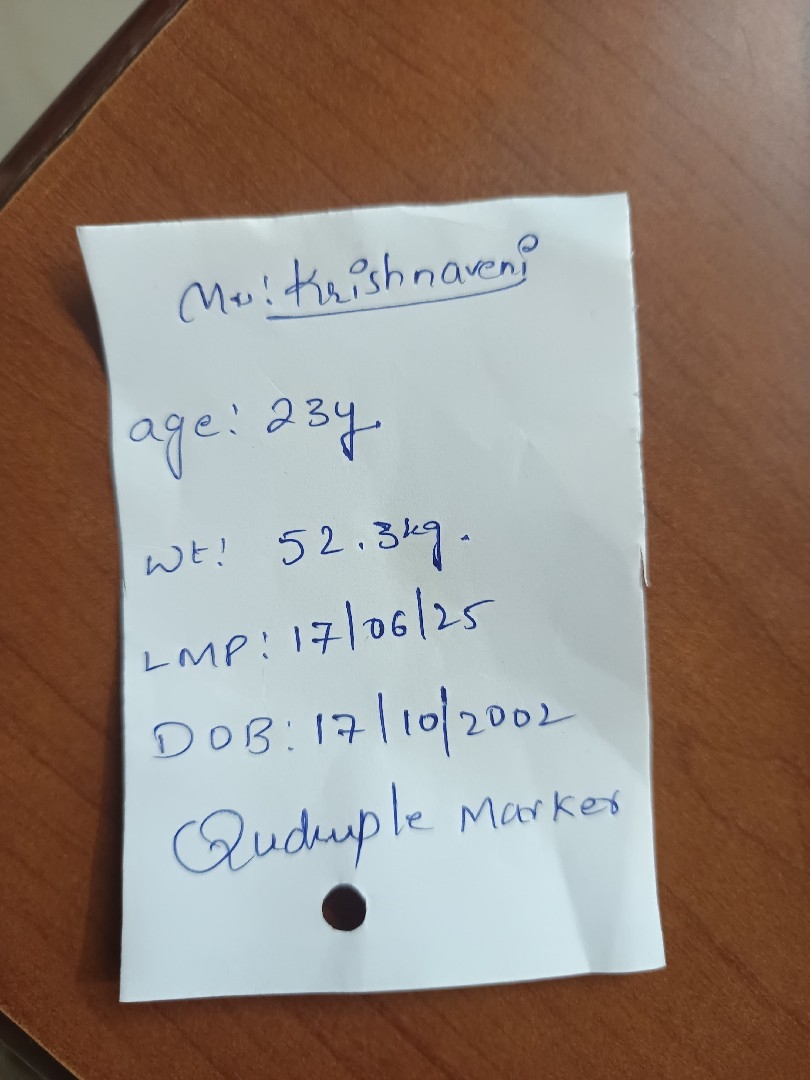 Mr: Krishnaveni
age: 23y.
Wt: 52.3kg.
LMP: 17/06/25
DOB: 17/10/2002
Quduple Marker